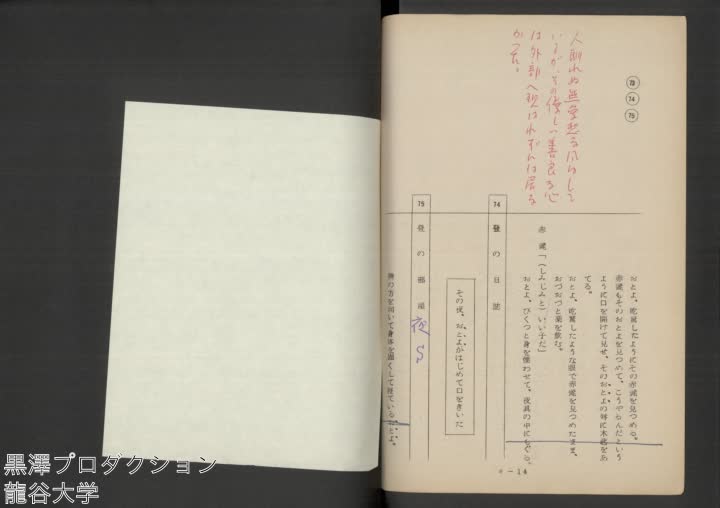 人馴れぬ無愛想な風にして
いるが、その優しい善良な心
は外部へ現はれずには居な
かった。
73
74
75
おとよ、吃驚したようにその赤滝を見つめる。
赤滝もそのおとよを見つめて、こうやるんだという
ように口を開けて見せ、そのおとよの唇に木匙をあ
てる。
おとよ、吃驚したような眼で赤滝を見つめたまま、
おづおづと薬を飲む。
赤滝「(しみじみと)いい子だ」
おとよ、びくっと身を慄わせて、夜具の中にもぐる。
74 登の日誌
その夜、おとよがはじめて口をきいた
75 登の部屋 夜 S
隣の方を向いて身体を固くして寝ているおとよ。
c-14
黒澤プロダクション
龍谷大学